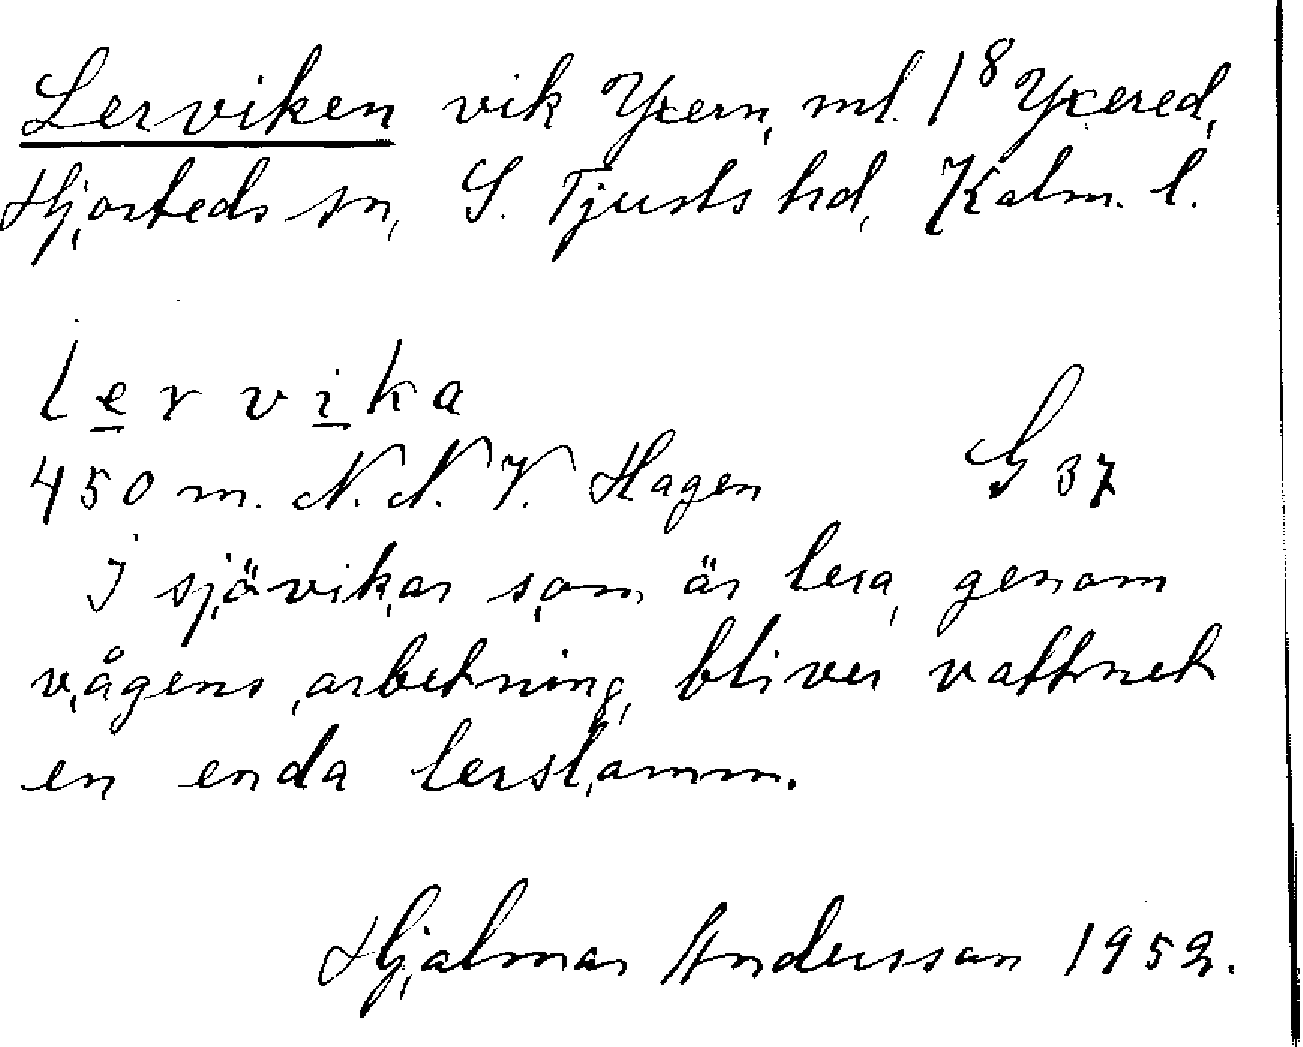 Lerviken vik Yxern, ml. 1⁸ Yxered,
Hjorteds sn, S. Tjusts hd, Kalm. l.
lervika
450 m. N. N. V. Hagen G 37
I sjövikar som är lera, genom
vågens arbetning, bliver vattnet
en enda lerslamm.
Hjalmar Andersson 1952.